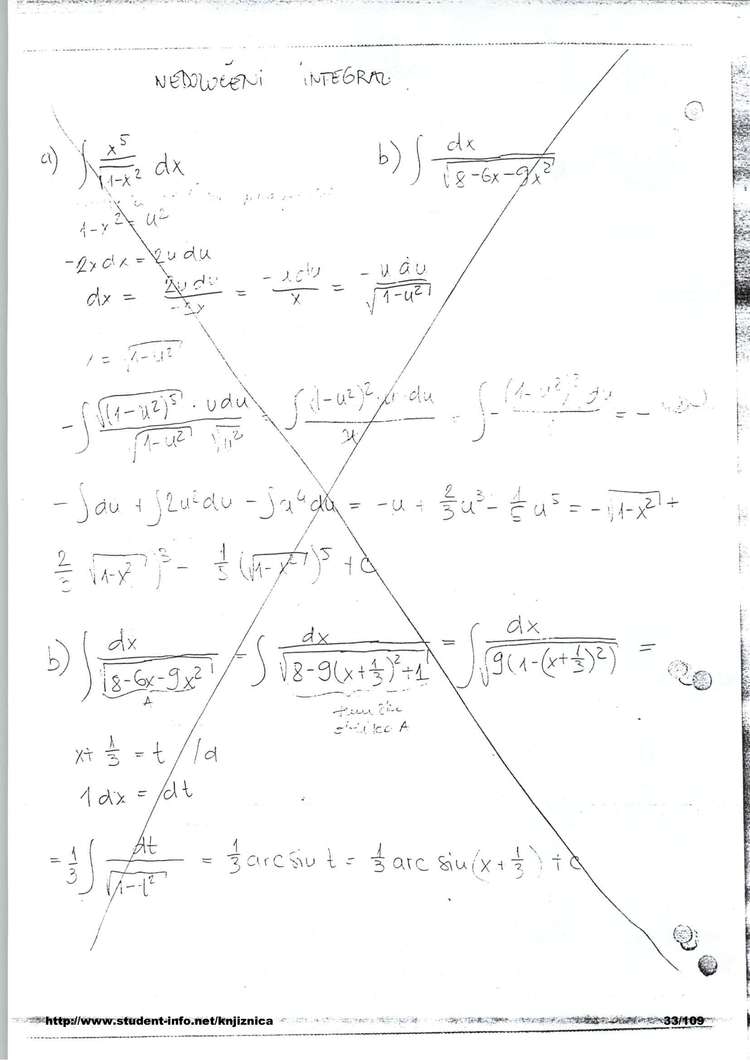 NEDOLOČENI INTEGRAL
a) ∫ x⁵/√(1-x²) dx b) ∫ dx/√(8-6x-9x²)
1-x² = u²
-2x dx = 2u du
dx = 2u du/-2x = -u du/x = -u du/√(1-u²)
= √(1-u²)
-∫ √(1-u²)⁵ · u du/√(1-u²) √u² = ∫ (1-u²)² · u · du/u = ∫ - (1-u²)² du = -
-∫ du + ∫ 2u² du - ∫ u⁴ du = -u + 2/3 u³ - 1/5 u⁵ = -√(1-x²) +
2/3 √(1-x²))³ - 1/5 (√(1-x²))⁵ + C
b) ∫ dx/√(8-6x-9x²) = ∫ dx/√(8-9(x+1/3)²+1) = ∫ dx/√(9(1-(x+1/3)²)) =
A
A
x + 1/3 = t /d
1 dx = dt
= 1/3 ∫ dt/√(1-t²) = 1/3 arc sin t = 1/3 arc sin (x + 1/3) + C
http://www.student-info.net/knjiznica 33/109